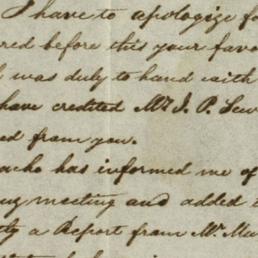 I have to apologize fo
red before this your favo
was duly to hand with
have credited Mr J. P. Lew
ed from you.
acho has informed me of
ng meeting and added
ly a Report from Mr Mu